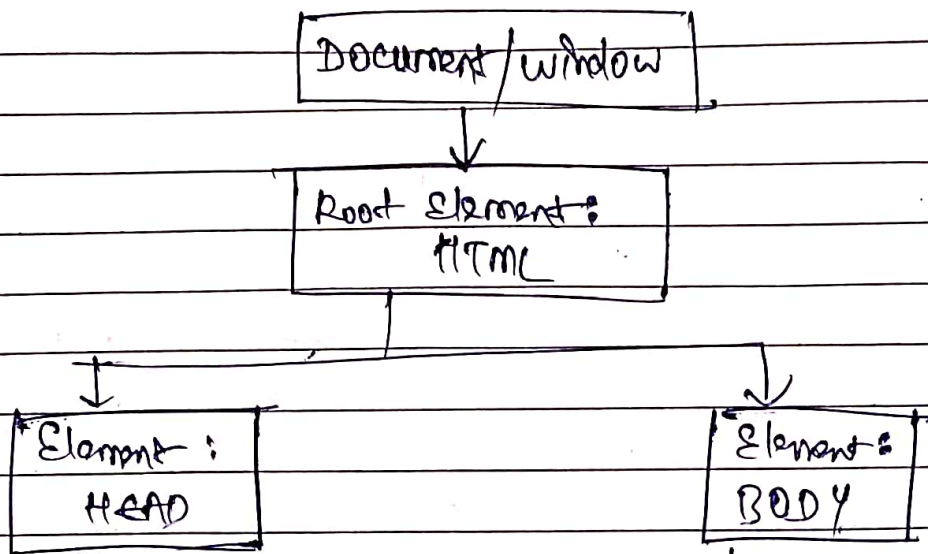 Document/window
Root Element:
HTML
Element:
HEAD
Element:
BODY